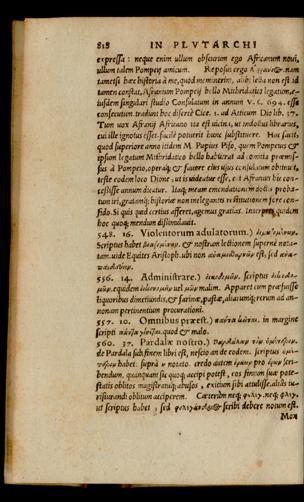 818 IN PLVTARCHI
expressa: neque enim ullum obscurum ego Africanum novi,
ullum talem Pompeij amicum. Reposui ergo nam
tametsi hæc historia à me, quod meminerim, alibi lecta non est id
tamen constat, Afranium Pompeij bello Mithridatico legatum, e-
iusdem singulari studio Consulatum in annum V. C. 694. esse
consecutum. tradunt hoc disertè Cic. 1. ad Atticum Dio lib. 37.
Tum vox Afranij Africano ita est vicina, ut indoctus librarius,
cui ille ignotus esset, facilè potuerit hunc substituere. Hoc facit,
quod superiore anno itidem M. Pupius Piso, quem Pompeius &
ipsum legatum Mithridatico bello habuerat ad comitia præmis-
sus à Pompeio, opera & favore eius consulatum obtinuit,
teste eodem loco Dione, ut videatur esse, et Afranius hîc con-
sedisse annum dicatur. Itaq; meam emendationem doctis proba-
tum iri, gratamq; historiæ non inelegantis restitutionem fore con-
fido. Si quis quid certius afferet, agemus gratias. Interpres quidem
hoc quoq; mendum dissimulavit.
548. 16. Violentorum adulatorum.)
Scriptus habet & nostram lectionem supernè nota-
tam. vide Equites Aristoph. ubi non est, sed
556. 14. Administrare.) scriptus
equidem vel malim. Apparet cum præfuisse
liquoribus dimetiundis, & farinæ, pastæ, aliarumq; rerum ad an-
nonam pertinentium procurationi.
557. 10. Omnibus præest.) in margine
scripti quod & malo.
560. 37. Pardalæ nostro.)
de Pardala sub finem libri est, nescio an de eodem. scriptus
habet. suprà notato. credo autem pro scri-
bendum, quanquam sic quoq; accipi potest, eos finem suæ pote-
statis oblitos magistratuq; abusos, exitium sibi attulisse. alias iu-
risiurandi oblitum acciperem. Cæterùm neq; neq;
ut scriptus habet, sed scribi debere notum est.
Mox